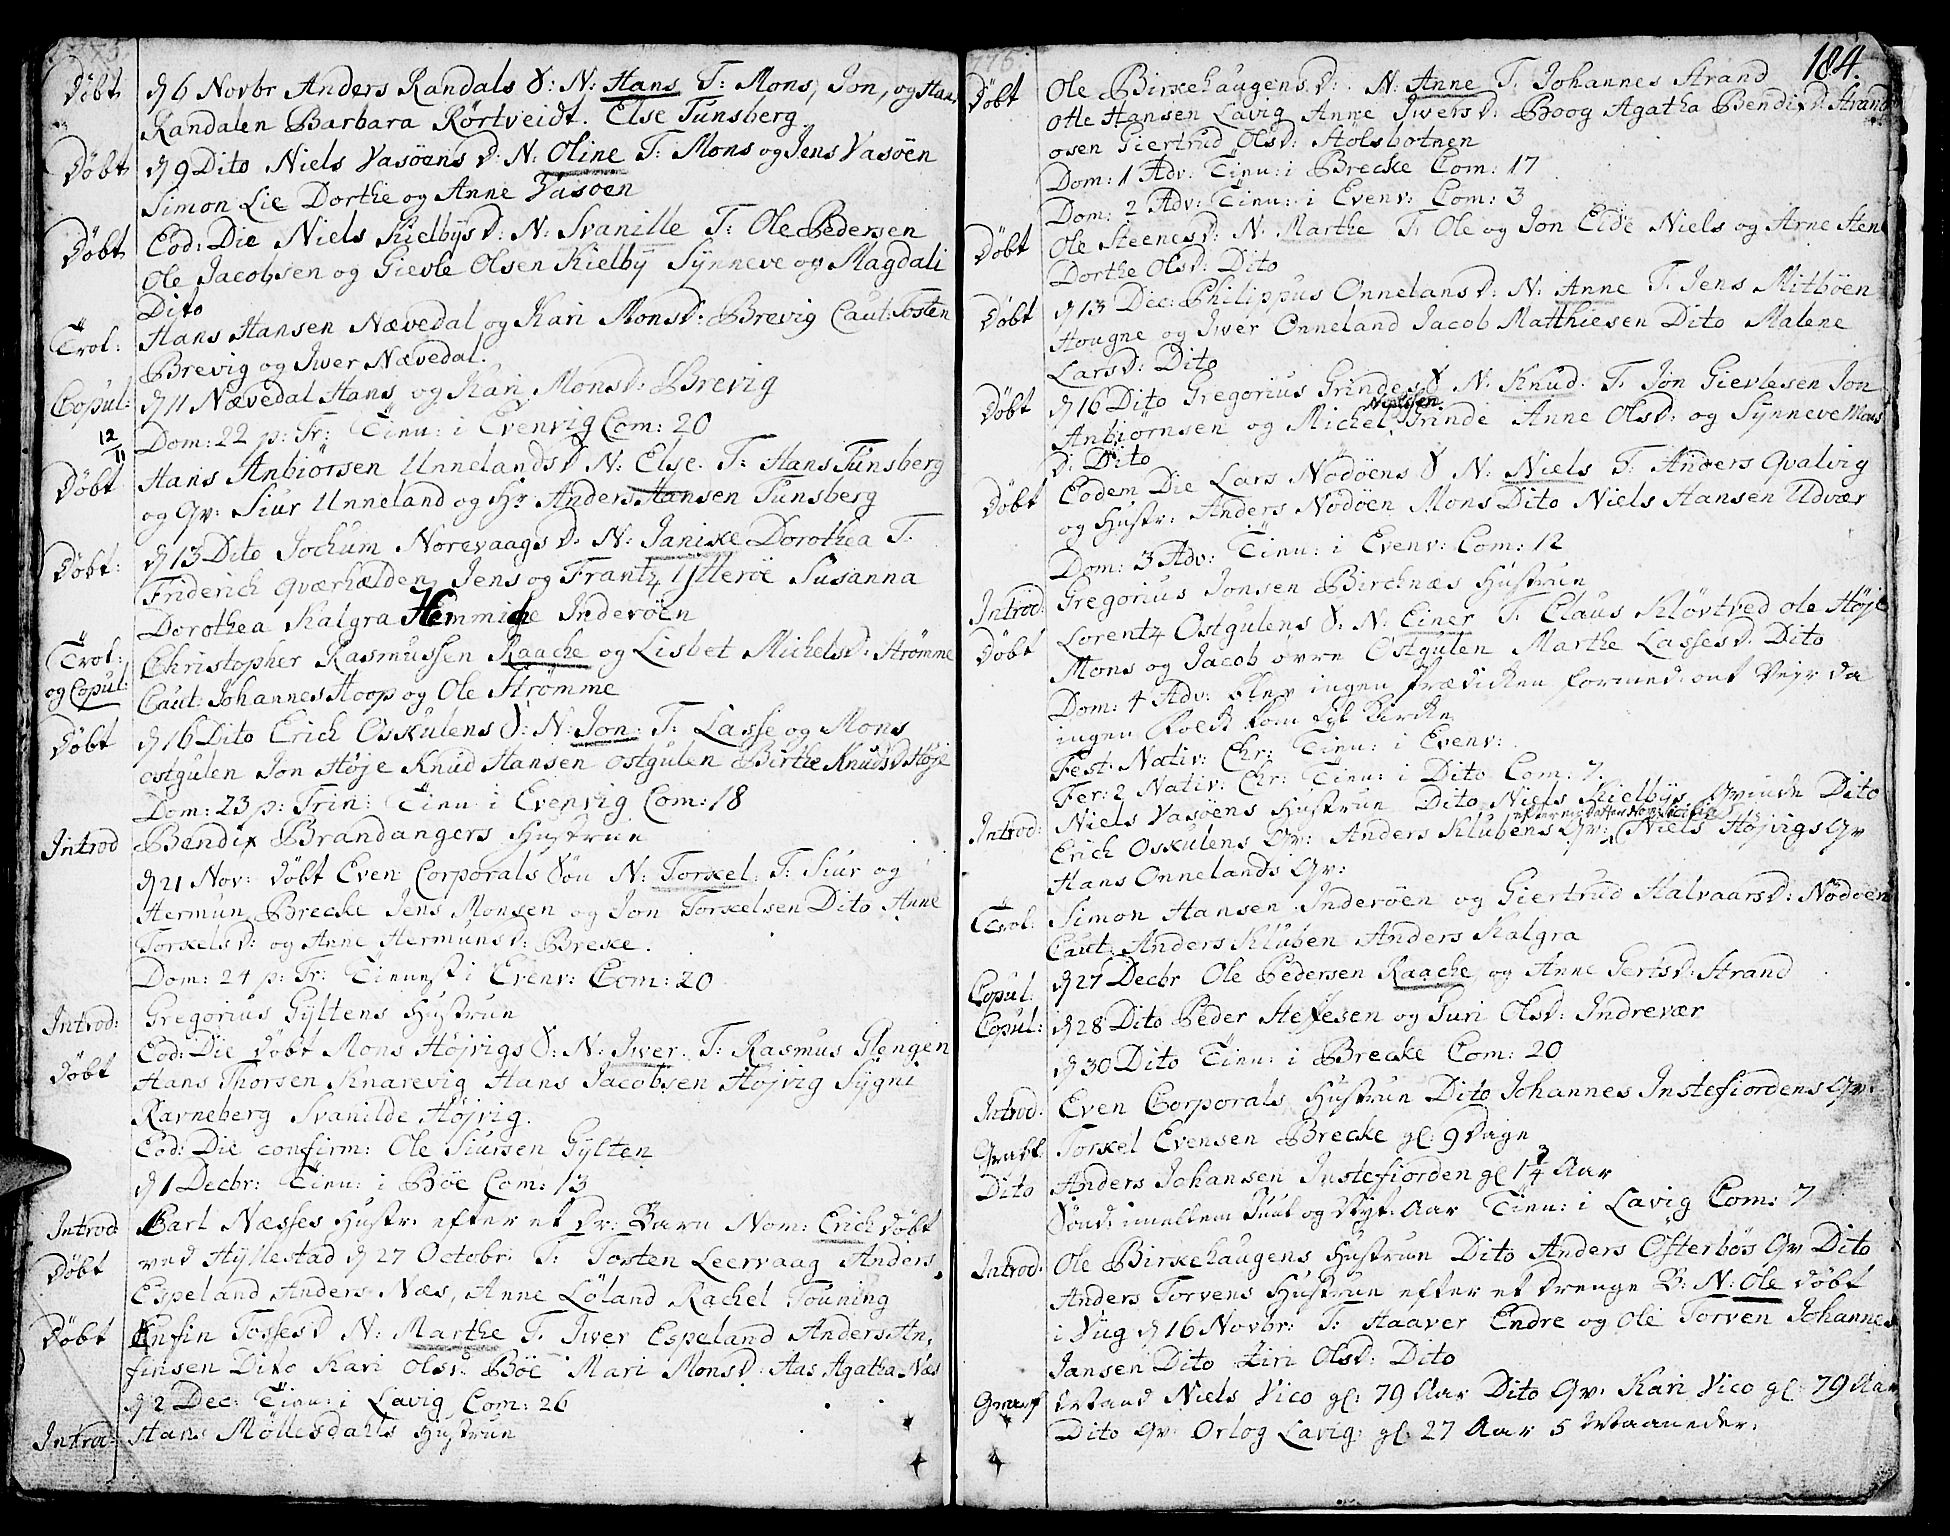 Döbt d 6 Novbr Anders Randals S: N: Hans T: Mons, Jon, og Hans
Randalen Barbara Rörtveidt. Else Tunsberg
Döbt d 9 Dito Niels Vasöens D: N: Oline T: Mons og Jens Vasöen
Simon Lie Dorthe og Anne Vasöen
Döbt Eod: Die Niels Kielbÿs D: N: Svanille T: Ole Pedersen
Ole Jacobsen og Gievle Olsen Kielbÿ Sÿnneve og Magdali
Dito
Trol: Hans Hansen Nævedal og Kari MonsD: Brevig Caut: Tosten
Brevig og Iwer Nævedal.
Copul: d 11 Nævedal Hans og Kari MonsD: Brevig
12/11 Dom: 22 p: Tr: Tien: i Evenvig Com: 20
Döbt Hans Anbiörsen Unnelands D N: Else. T: Hans Tunsberg
og Qv: Siur Unneland og Hr Anders Hansen Tunsberg
Döbt: d 13 Dito Jochum Norevaags D: N: Janike Dorothea T:
Friderich Qværhælden, Jens og Frantz Ytteröe Susanna
Dorothea Kalgra Hemmiche Inderöen
Trol: og Copul: Christopher Rasmussen Raache og Lisbet MichelsD: Strømme
Caut: Johannes Hoop og Ole Strømme
Döbt d 16 Dito Erich Oskulens S: N: Jon. T: Lasse og Mons
ostgulen Jon Høje Knud Hansen ostgulen Birthe KnudsD Höje
Dom: 23 p: Trin: Tien: i Evenvig Com: 18
Introd Bendix Brandangers Hustrue
d 21 Nov: döbt Even Corporals Sön N: Torkel. T: Siur og
Hermun Brecke Jens Monsen og Jon Torkelsen Dito Anne
TorkelsD: og Anne HermunsD: Breke.
Dom: 24 p: Tr: Tienest i Evenv: Com: 20
Introd: Gregorius Gÿltens Hustrue
Döbt Eod: Die döbt Mons Höjvigs S: N: Iwer. T: Rasmus Glengen
Hans Thorsen Knarevig Hans Jacobsen Höjvig Sÿgni
Ravneberg Svanilde Höjvig.
Eod: Die confirm: Ole Siursen Gÿlten
d 1 Decbr: Tien: i Böe Com: 13
Introd Carl Næsses Hustr: efter et Dr: Barn Nom: Erich döbt
Döbt ved Hÿllestad d 27 Octobr: T: Tosten Leervaag Anders
Espeland Anders Næs, Anne Löland Rachel Touning
Döbt Enfin Tosses D N: Marthe T. Iwer Espeland Anders An,
finsen Dito Kari OlsD: Böe Mari MonsD: Aas Agatha Næs
d 2 Dec: Tien: i Lavig Com: 26
Introd: Hans Möllesdahls Hustrue
184.
Döbt Ole Birkehaugens D: N: Anne T. Johannes Strand
Otte Hansen Lavig Anne IwersD: Boog Agatha BendixD. Strand
osen Giertrud OlsD: Stölsbotnen
Dom: 1 Adv: Tien: i Brecke Com: 17
Dom: 2 Adv: Tien: i Evenv: Com: 3
Döbt Ole Steenes D: N: Marthe T: Ole og Jon Eide Niels og Arne Sten
Dorthe OlsD: Dito
Döbt d 13 Dec: Philippus Onnelans D: N: Anne T. Jens Mitböen
Hougne og Iwer Onneland Jacob Matthiesen Dito Malene
LarsD: Dito
Döbt d 16 Dito Gregorius Grindes S N: Knud. T. Jon Gievlesen Jon
Anbiörnsen og Michel Nielssen Grinde Anne OlsD: og Sÿnneve Mons
D: Dito
Döbt Eodem Die Lars Nödöens S N: Niels T: Anders Qvalvig
og Hustr: Anders Nödöen Mons Dito Niels Hansen Udvær
Dom: 3 Adv: Tien: i Evenv: Com: 12
Introd: Gregorius Jonsen Birchnæs Hustrue
Döbt Lorentz Ostgulens S: N: Einer T: Claus Klövtved Ole Höje
Mons og Jacob övre Ostgulen Marthe LassesD. Dito
Dom: 4 Adv: blev ingen Prædicken formed: ont Vejr da
ingen Folck kom til Kircke
Fest: Nativ: Chr: Tien: i Evenv:
Fer: 2 Nativ: Chr: Tien: i Dito Com: 7.
Introd: Niels Vasöens Hustrue Dito Niels Kielbÿs Qvinde Dito
Erich Oskulens Qv: Anders Klubens Qv: Niels Höjvigs Qv
Hans Onnelands Qv:
Trol: Simon Hansen Inderöen og Giertrud HalvaarsD: Nödöen
Caut: Anders Kluben Anders Kalgra
Copul: d 27 Decbr Ole Pedersen Raache og Anne GertsD: Strand
Copul: d 28 Dito Peder Steffesen og Turi OlsD: Indrevær
d 30 Dito Tien: i Brecke Com: 20
Introd: Even Corporals Hustrue Dito Johannes Instefiordens Qv:
Gravf. Torkel Evensen Brecke gl: 9 Dage
Dito Anders Johansen Instefiorden gl 1 3/4 Aar
Sönd: imellem Juul og Nyt Aar Tien: i Lavig Com: 7
Introd: Ole Birkehaugens Hustrue Dito Anders Osterbös Qv Dito
Anders Torvens Hustrue efter et Drenge B: N: Ole döbt
i Viig d 16 Novbr: T: Haaver Endre og Ole Torven Johannes
Jansen Dito Siri OlsD: Dito
Gravf Niels Vico gl: 79 Aar Dito Qv: Kari Vico gl: 79 Aar
Dito Qv: Orlog Lavig gl: 27 Aar 5 Maaneder.